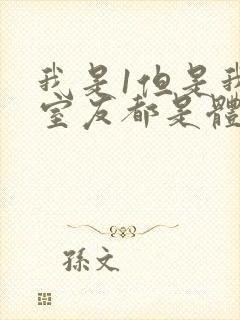 我是1但是我
室友都是體
孫文